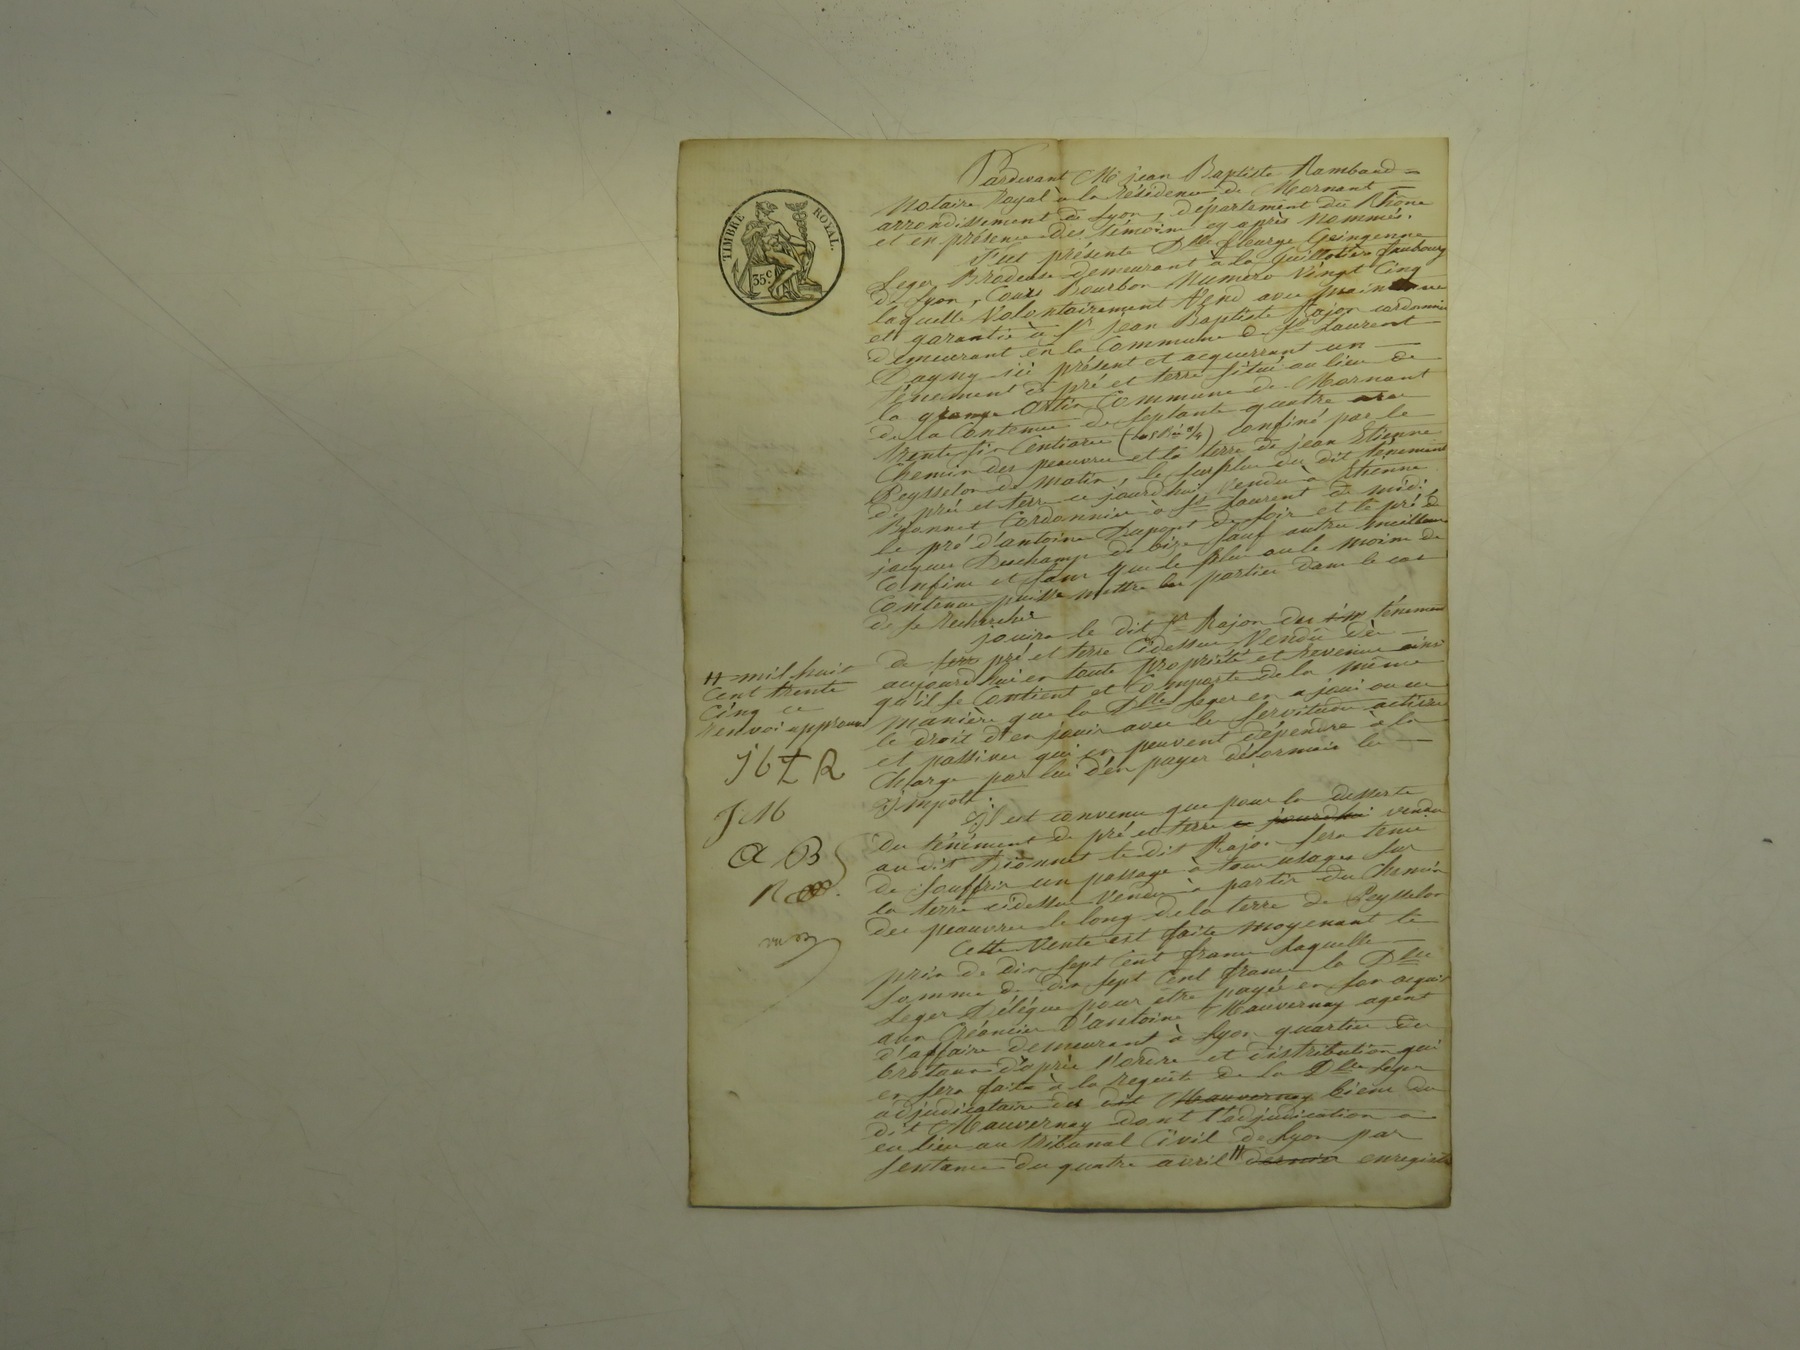 TIMBRE ROYAL.
35c
Pardevant Me jean Baptiste Rambaud =
Notaire Royal à la résidence de Mornant =
arrondissement de Lyon, département du Rhône
et en présence des témoins cy après nommés.
fut présente Dlle fleurye
Leger Brodeuse demeurant à la Guillotière faubourg
de Lyon, Cours Bourbon Numero Vingt Cinq
laquelle Volontairement Vend avec maintenue
et garantie à Sr jean Baptiste Rajon cordonnier
demeurant en la Commune de St Laurent
Dagny ici présent et acquerrant un —
ténement de pré et terre situé au lieu de
la grange Commune de Mornant
de la Contenue de Septante quatre ares
trente six Centiares confiné par le
Chemin des peauvres et la terre de jean Etienne
Peysselon de matin, le surplus du dit ténement
de pré et terre ce jourd'hui Vendu à Etienne
Bonnet Cordonnier à St Laurent de midi
le pré d'antoine Dupont de soir et le pré de
jacques Deschamps de bize sauf autres meilleurs
Confins et sans que le plus ou le moins de
Contenue puisse mettre les parties dans le cas
de se rechercher
jouira le dit Sr Rajon du ténement
de pré et terre cidessus Vendû dès —
aujourd'hui en toute propriété et revenus ainsi
qu'il se Contient et Comporte de la même
manière que la Dlle Leger en a joui ou eu
le droit d'en jouir avec les servitudes actives
et passives qui en peuvent dépendre à la
Charge par lui d'en payer désormais les —
Impôts.
Il est convenu que pour la desserte
du ténement de pré et terre ce jourd'hui vendu
au dit Bonnet le dit Rajon sera tenu
de souffrir un passage à tous usages sur
la terre cidessus Vendue à partir du Chemin
des peauvres le long de la terre de Peysselon
Cette Vente est faite moyenant le
prix de dix sept Cent francs laquelle —
somme de dix sept Cent francs la Dlle
Leger délègue pour être payée en son acquit
aux Créanciers d'antoine Mauvernay agent
d'affaires demeurant à Lyon quartier des
brotaux d'après l'ordre et distribution qui
en sera faite à la requête de la Dlle Leger
adjudicataire des dit Mauvernay biens du
dit Mauvernay dont l'adjudication a
eu lieu au tribunal Civil de Lyon par
sentence du quatre avril # dernier enregistré
# mil huit
Cent trente
Cinq ce
renvoi approuvé
J B R
J M
A B
R